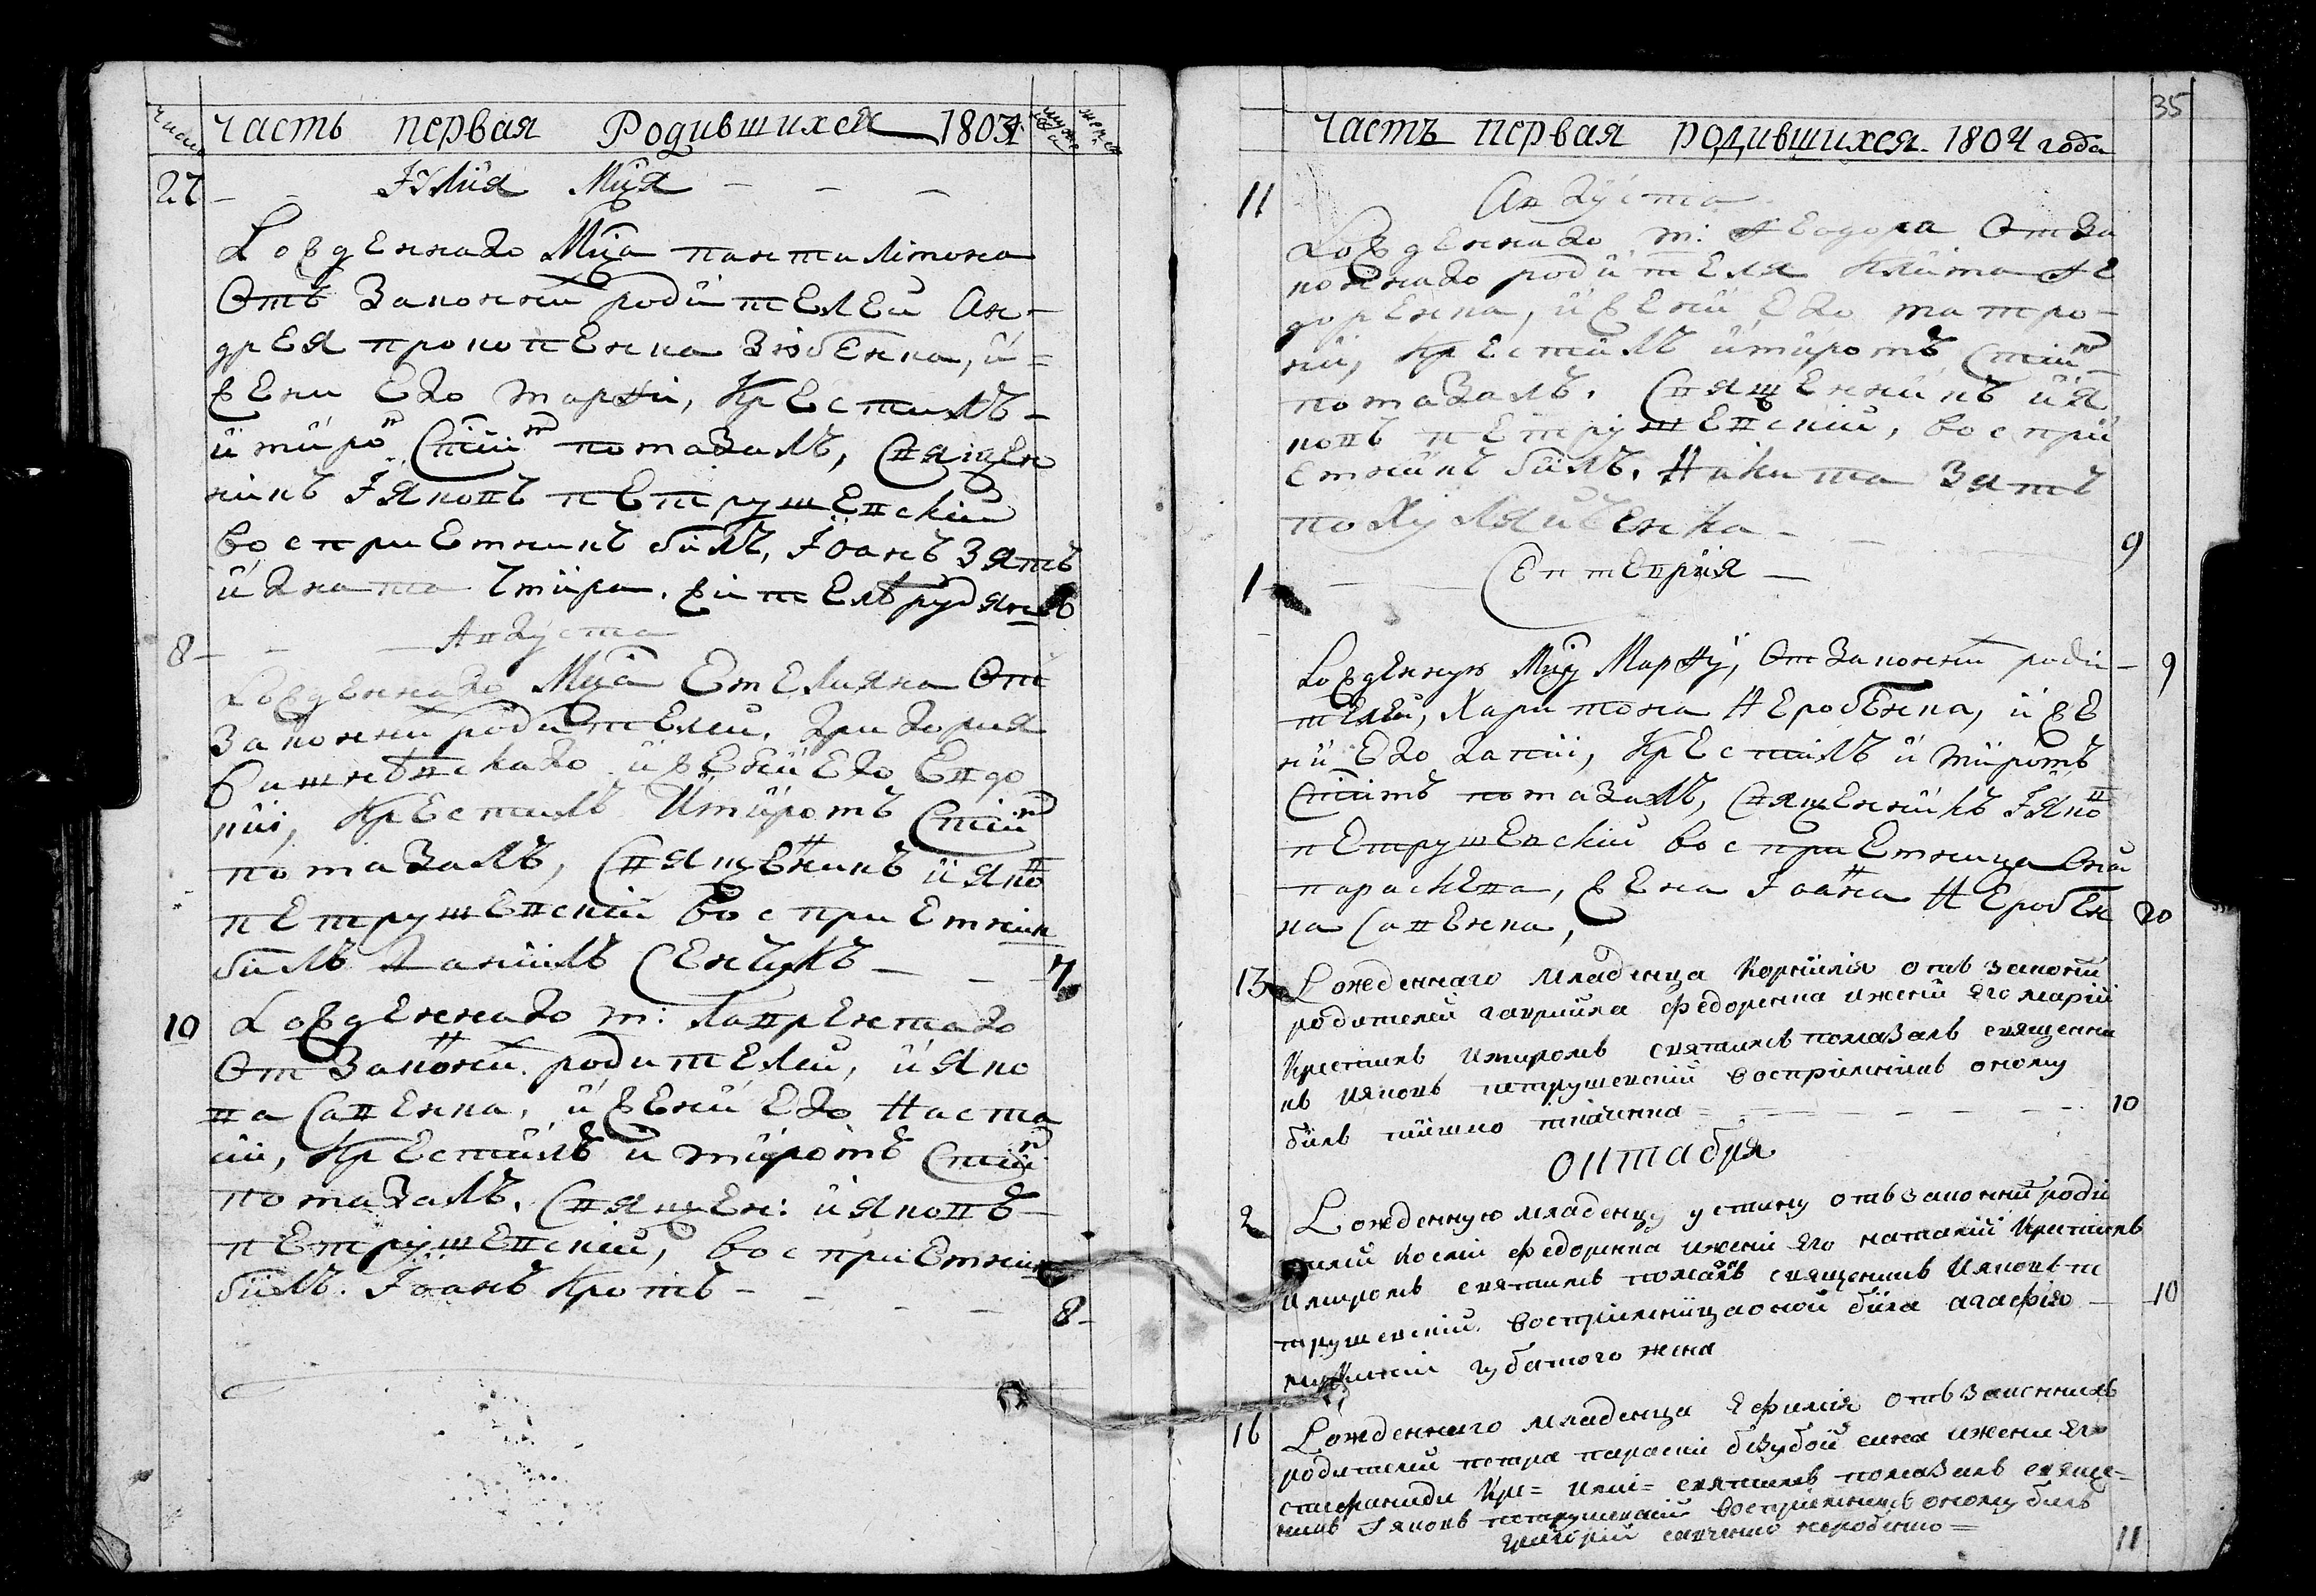 Число Часть первая Родившихся 1804
27 Іулія Мца
Рожденнаго Мца панталімона
Отъ законни родителей Ан-
дрея прокопенка Зюбенка, и=
жени Его марфи, Крестилъ-
и миро Стим помазалъ, Священ
никъ Іяковъ петрушевскій
воспріемникъ билъ, Іоанъ Зять
игната житель рудян 6
8 Августа
Рожденнаго Мца Емеліяна Отъ
законни родителей, григорія
вишнѣвскаго и жени Его Евдо
кіи, Крестилъ и миромъ Стим
помазалъ, Священикъ ияков
петрушевскій воспріемник
билъ Даніилъ Сенчукъ 7
10 Рожденнаго м: лаврентаго
От законни родителей, ияко
ва Савенка, и жени Его Наста
іи, Крестилъ и миромъ Стим
помазалъ. Священ: ияковъ
петрушевскій, воспріемник
билъ. Іоанъ Кротъ 8
35
Часть первая родившихся 1804 года
11 Августа
Рожденнаго м: феодора От за
коннаго родителя Кліма фе
доренка, и жени Его матро-
ни, Крестилъ и миромъ Стим
помазалъ. Священникъ ия
ковъ петрушевскій, воспри
емникъ билъ. Никита Зять
9
1 Септеврія
Рожденную Мцу Марфу, От законни роди- 9
телей, Харитона Неробенка, и же
ни Его Крестилъ и миромъ
Стимъ помазалъ, Священникъ Іяков
петрушевскій воспріемница Оной
параскева, жена Іоана Неробен 20
ка Савенка,
13 Рожденнаго младенца Корнилія отъ законни
родителей гавриила федоренка и жени его маріи
Крестилъ и миромъ святимъ помазалъ священни
къ ияковъ петрушевскій воспріемникъ оному
билъ ткаченка 10
октабря
2 Рожденную младенцу устину отъ законний роди
телей космі федоренка и жени его наталіи Крестилъ
и миромъ святимъ помазалъ священикъ Ияковъ пе
трушевскій, воспріемница оной била агафія 10
губатого жена
16 Рожденнаго младенца Ефимія отъ законнихъ
родителей петра параскіи безубой сина и жени его
стефаниди Кре= и ми= святимъ помазалъ свяще-
никъ Іяковъ петрушевскій воспріемникъ оному билъ
григорій савченко неробенко= 11